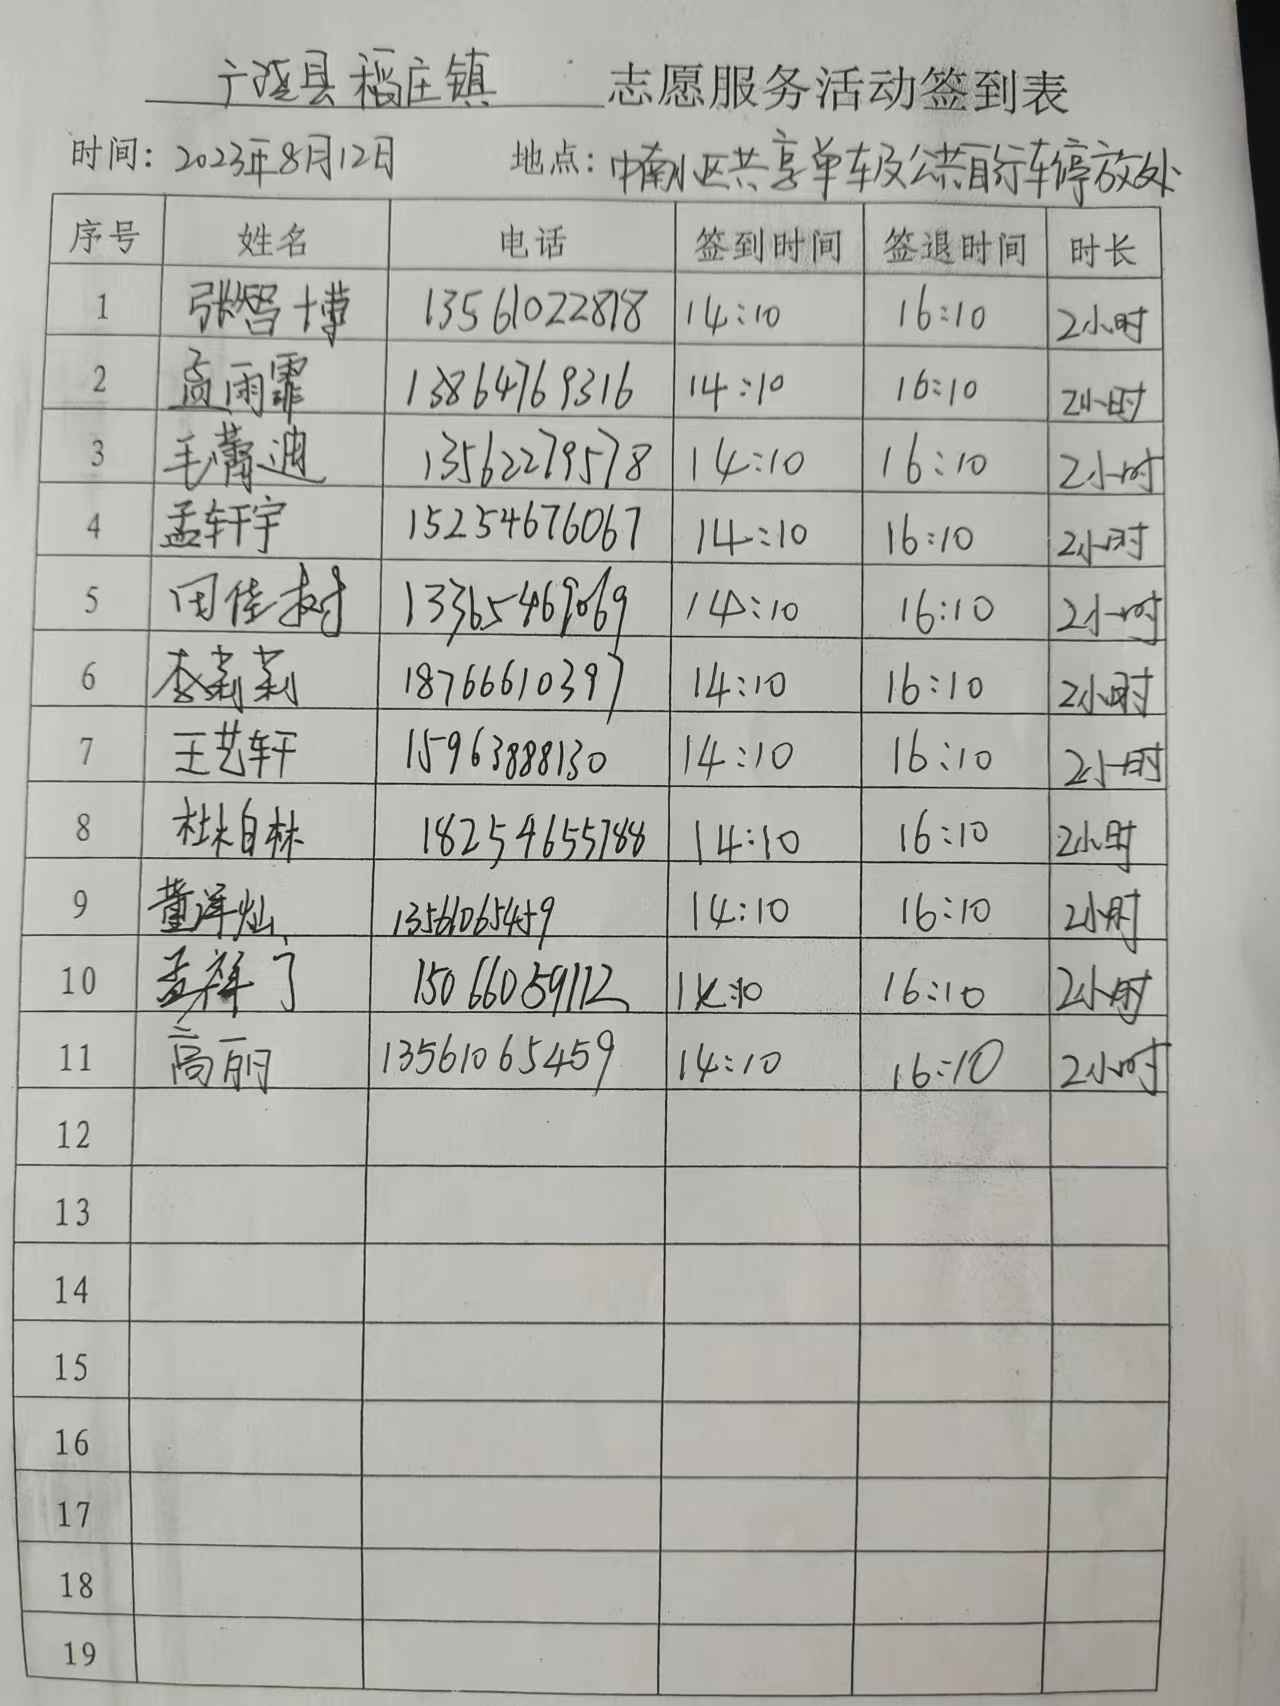 广饶县稻庄镇 志愿服务活动签到表
时间：2023年8月12日 地点：中南小区共享单车及公共自行车停放处
序号 姓名 电话 签到时间 签退时间 时长
1 张智博 13561022818 14:10 16:10 2小时
2 孟雨霏 13864769316 14:10 16:10 2小时
3 毛薷迪 13562279578 14:10 16:10 2小时
4 孟轩宇 15254676067 14:10 16:10 2小时
5 田佳树 13365469069 14:10 16:10 2小时
6 李莉莉 18766610397 14:10 16:10 2小时
7 王艺轩 15963888130 14:10 16:10 2小时
8 杜自林 18254655788 14:10 16:10 2小时
9 董泽灿 13561065459 14:10 16:10 2小时
10 孟祥 15066059112 14:10 16:10 2小时
11 高丽 13561065459 14:10 16:10 2小时
12
13
14
15
16
17
18
19